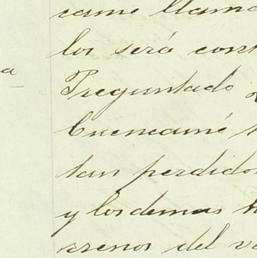 came llama
los será cont
a
Preguntado
Cuencamé
tan perdido
y los demas
rrenos del v